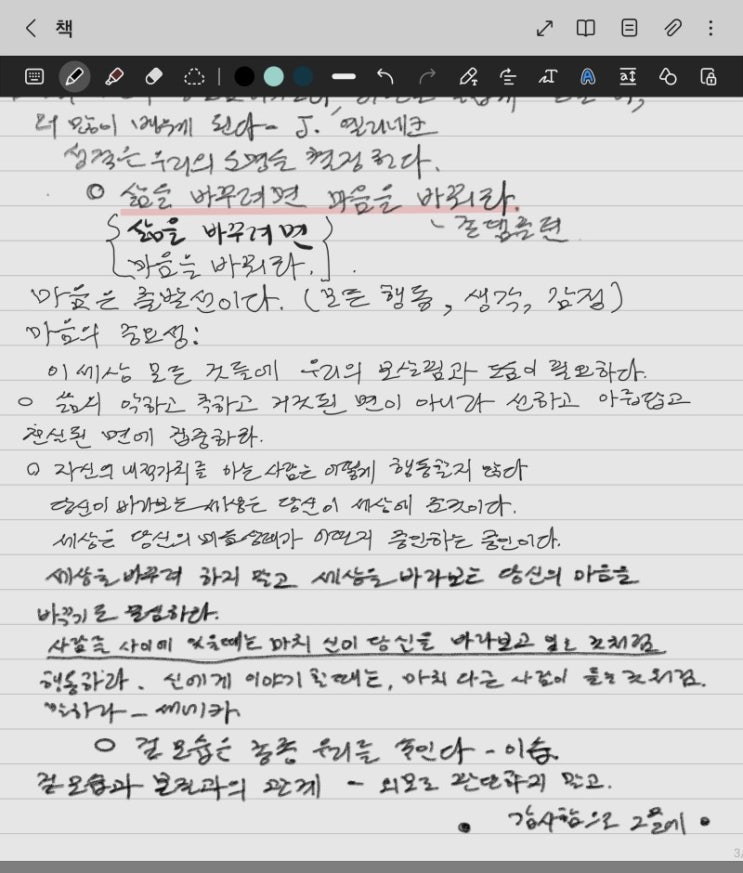 책
더 많이 배우게 된다 - J.
성격은 우리의 운명을 결정한다.
○ 삶을 바꾸려면 마음을 바꿔라.
삶을 바꾸려면
마음을 바꿔라.
마음은 출발선이다. (모든 행동, 생각, 감정)
마음의 중요성:
이 세상 모든 것들에 우리의 보살핌과 도움이 필요하다.
○ 삶의 악하고 추하고 거짓된 면이 아니라 선하고 아름답고
진실된 면에 집중하라.
○ 자신의 내적가치를 아는 사람은 어떻게 행동할지 않다
당신이 바라보는 세상은 당신이 세상에
세상은 당신의 어떤지 증언하는 증인이다.
세상을 바꾸려 하지 말고 세상을 바라보는 당신의 마음을
바꾸기로 결심하라.
사람들 사이에 있을때는 마치 신이 당신을 바라보고 있는 것처럼
행동하라. 신에게 이야기 할때는, 마치 다른 사람이 듣는 것처럼
말하라 - 세네카
○ 겉모습은 종종 우리를 속인다 - 이솝
겉모습과 본질과의 관계 - 외모로 판단하지 말고.
• 감사함으로 •